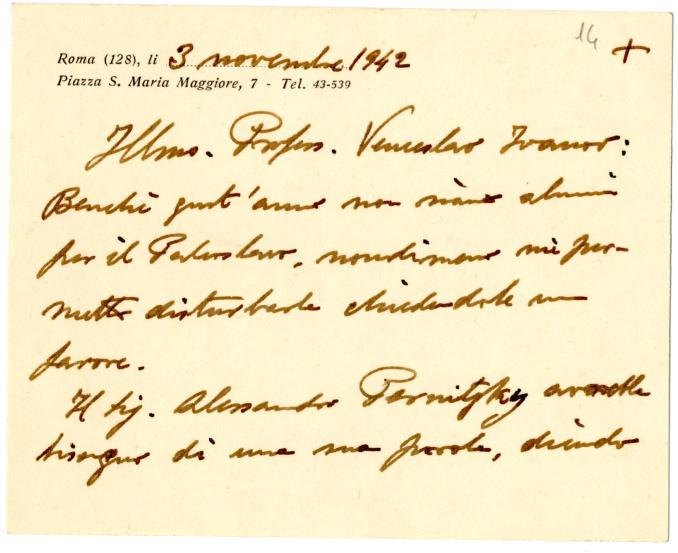 14 +
Roma (128), li 3 novembre 1942
Piazza S. Maria Maggiore, 7 - Tel. 43-539
Illmo. Profess. Venceslao Ivanov:
Benchè quest'anno non siano alunni
per il Paleoslavo, nondimeno mi per-
metto disturbarLe chiedendole un
favore.
Il Sig. Alessandro Pernitzky avrebbe
bisogno di una sua parola, dicendo